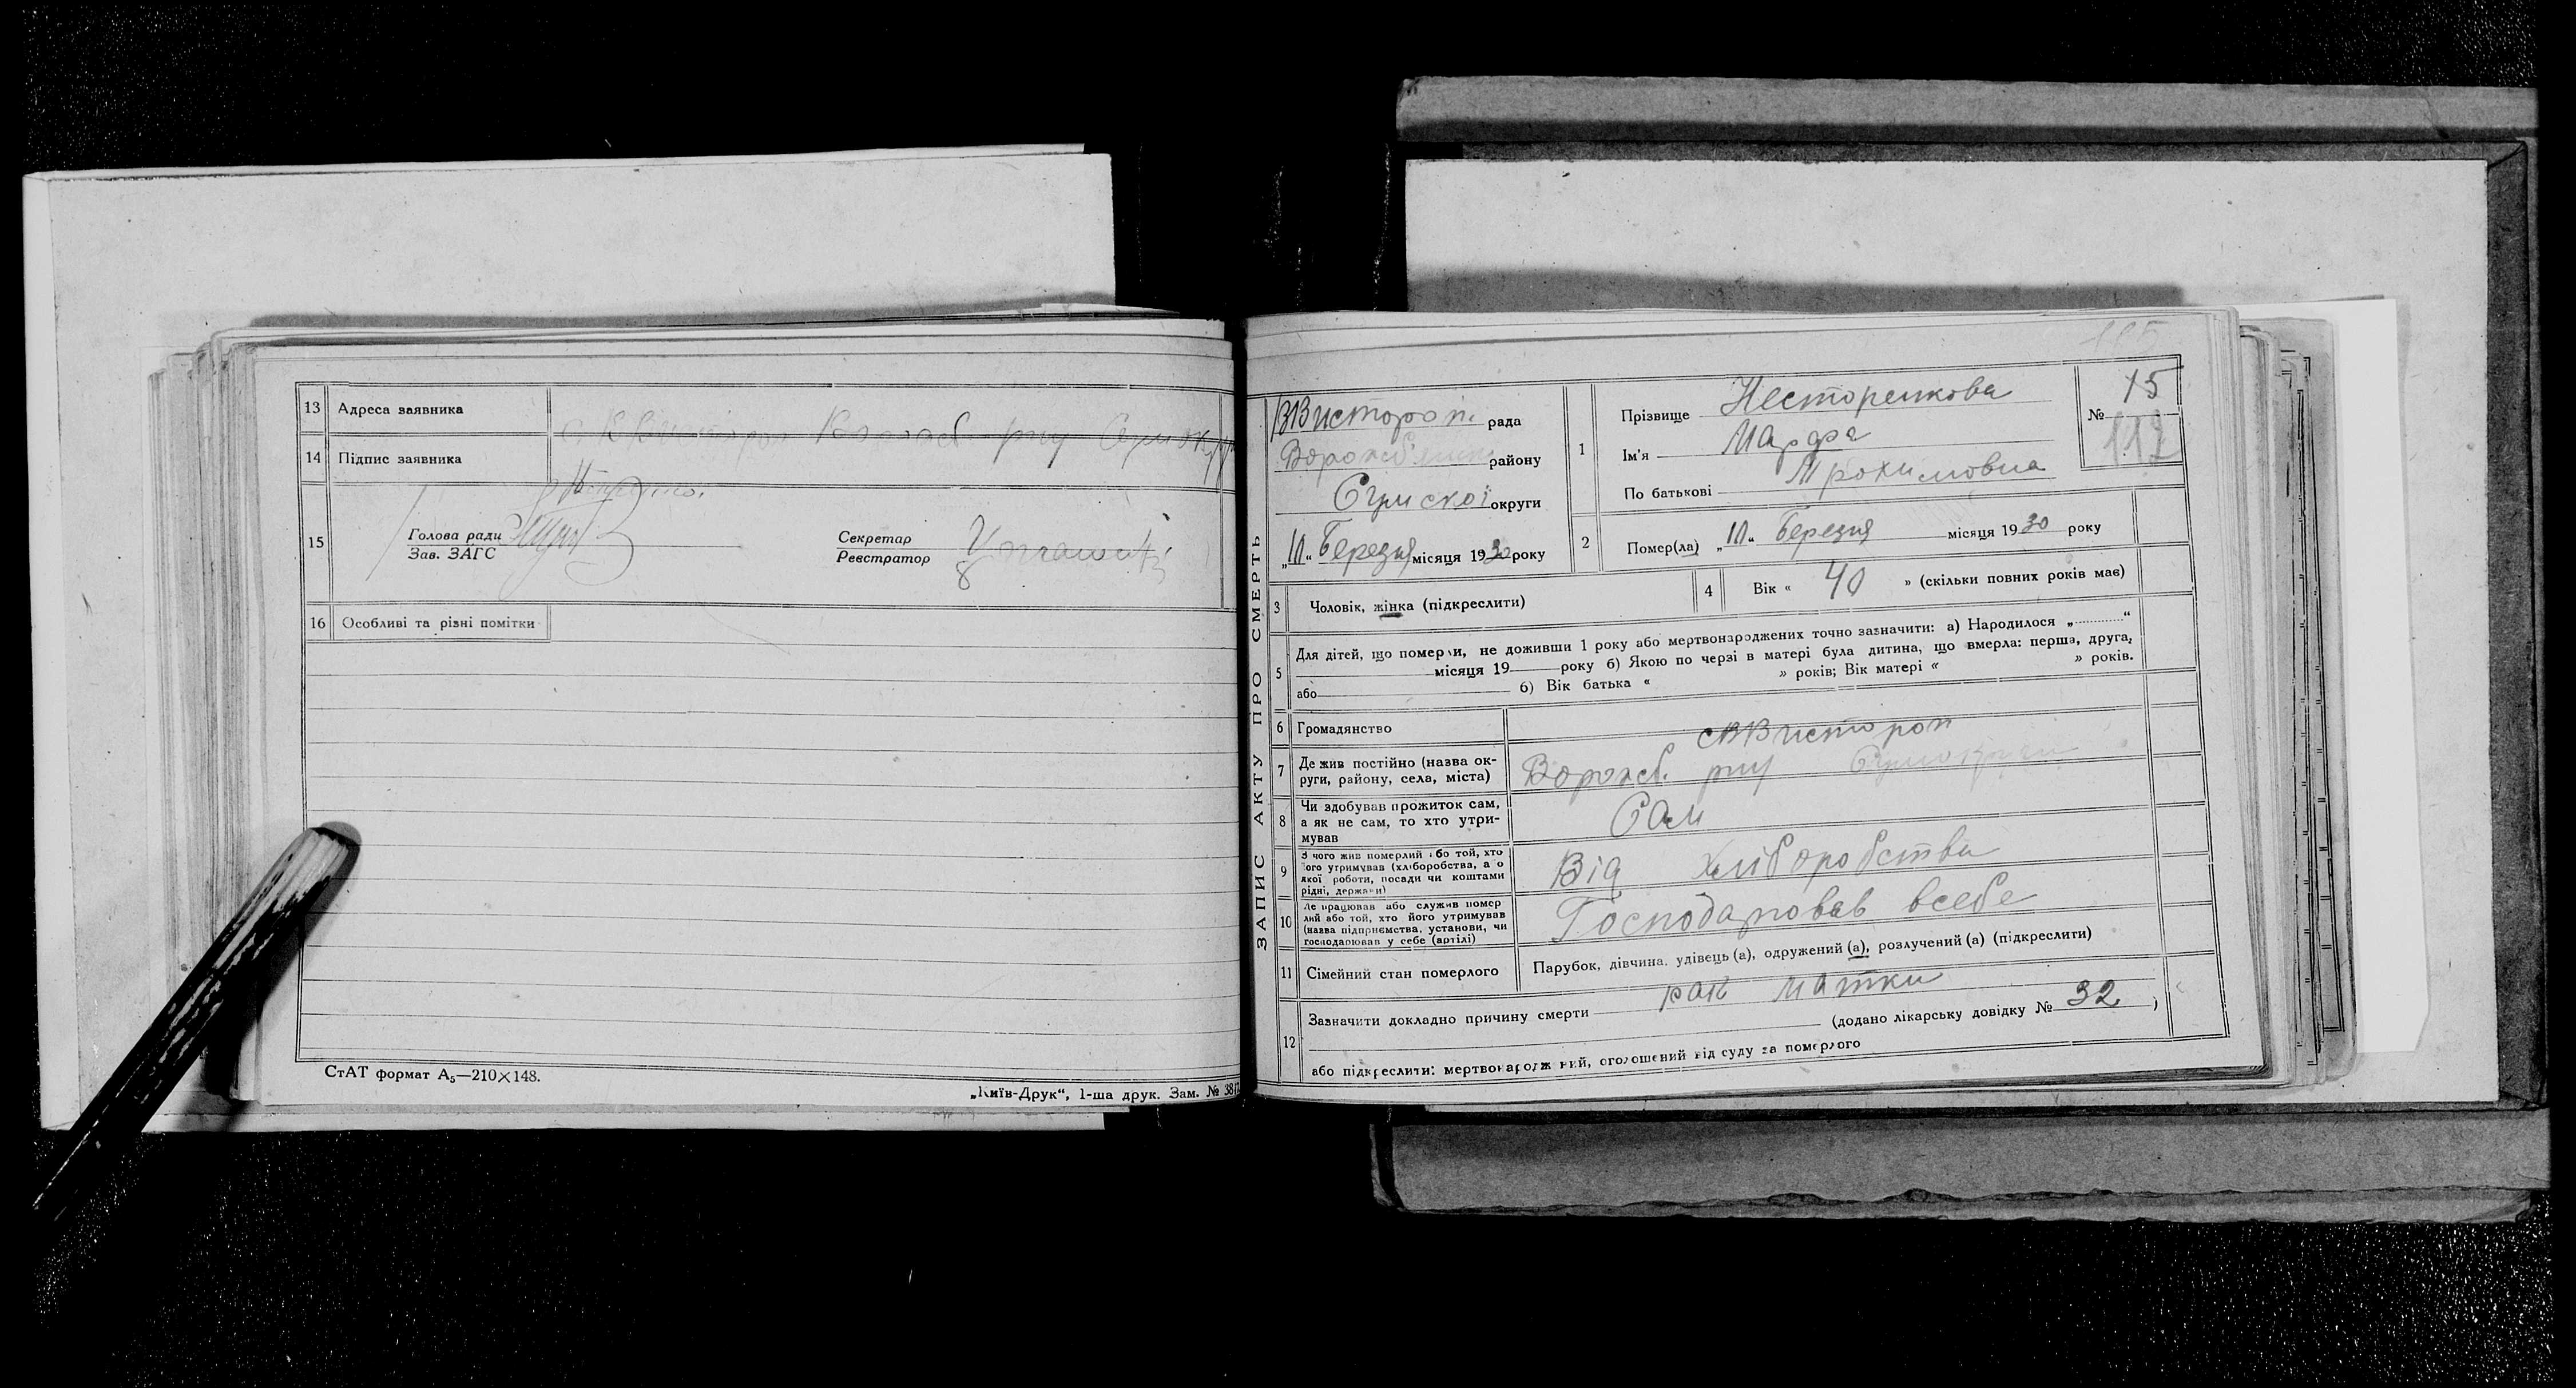 13 Адреса заявника
14 Підпис заявника
15 Голова ради
Зав. ЗАГС
Секретар
Реєстратор
16 Особливі та різні помітки
СтАТ формат А₅—210×148.
„Київ-Друк“, 1-ша друк. Зам. № 38
ЗАПИС АКТУ ПРО СМЕРТЬ
ВВистороп. рада
району
Сумської округи
Березня місяця 1930 року
1 Прізвище Несторенкова
Ім'я Марфа
По батькові Трохимовна
№ 15
117
2 Помер(ла) Березня місяця 1930 року
3 Чоловік, жінка (підкреслити)
4 Вік « 40 » (скільки повних років мав)
5 Для дітей, що померли, не доживши 1 року або мертвонароджених точно зазначити: а) Народилося „ “
місяця 19 року б) Якою по черзі в матері була дитина, що вмерла: перша, друга,
або б) Вік батька « » років; Вік матері « » років.
6 Громадянство
7 Де жив постійно (назва ок-
руги, району, села, міста)
с ВВистороп
Ворожб. р-ну
8 Чи здобував прожиток сам,
а як не сам, то хто утри-
мував
Сам
9 З чого жив померлий або той, хто
його утримував (хліборобства, або
якої роботи, посади чи коштами
рідні, держави)
Від хліборобства
10 Де працював або служив помер
лий або той, хто його утримував
(назва підприємства, установи, чи
господарював у себе (артілі)
Господарював всебе
11 Сімейний стан померлого
Парубок, дівчина, удівець (а), одружений (а), розлучений (а) (підкреслити)
12 Зазначити докладно причину смерти рак матки
(додано лікарську довідку № 32 )
або підкреслити: мертвонароджений, оголошений від суду за померлого